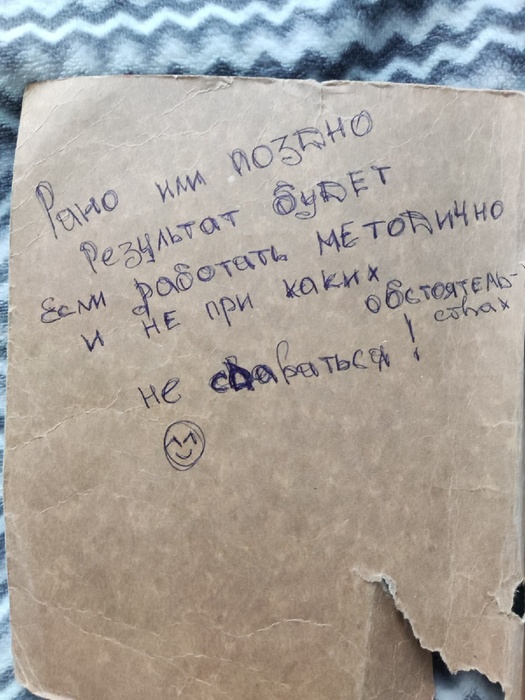 Рано или поздно
Результат будет
Если работать методично
и не при каких обстоятель-
ствах
не сдаваться!